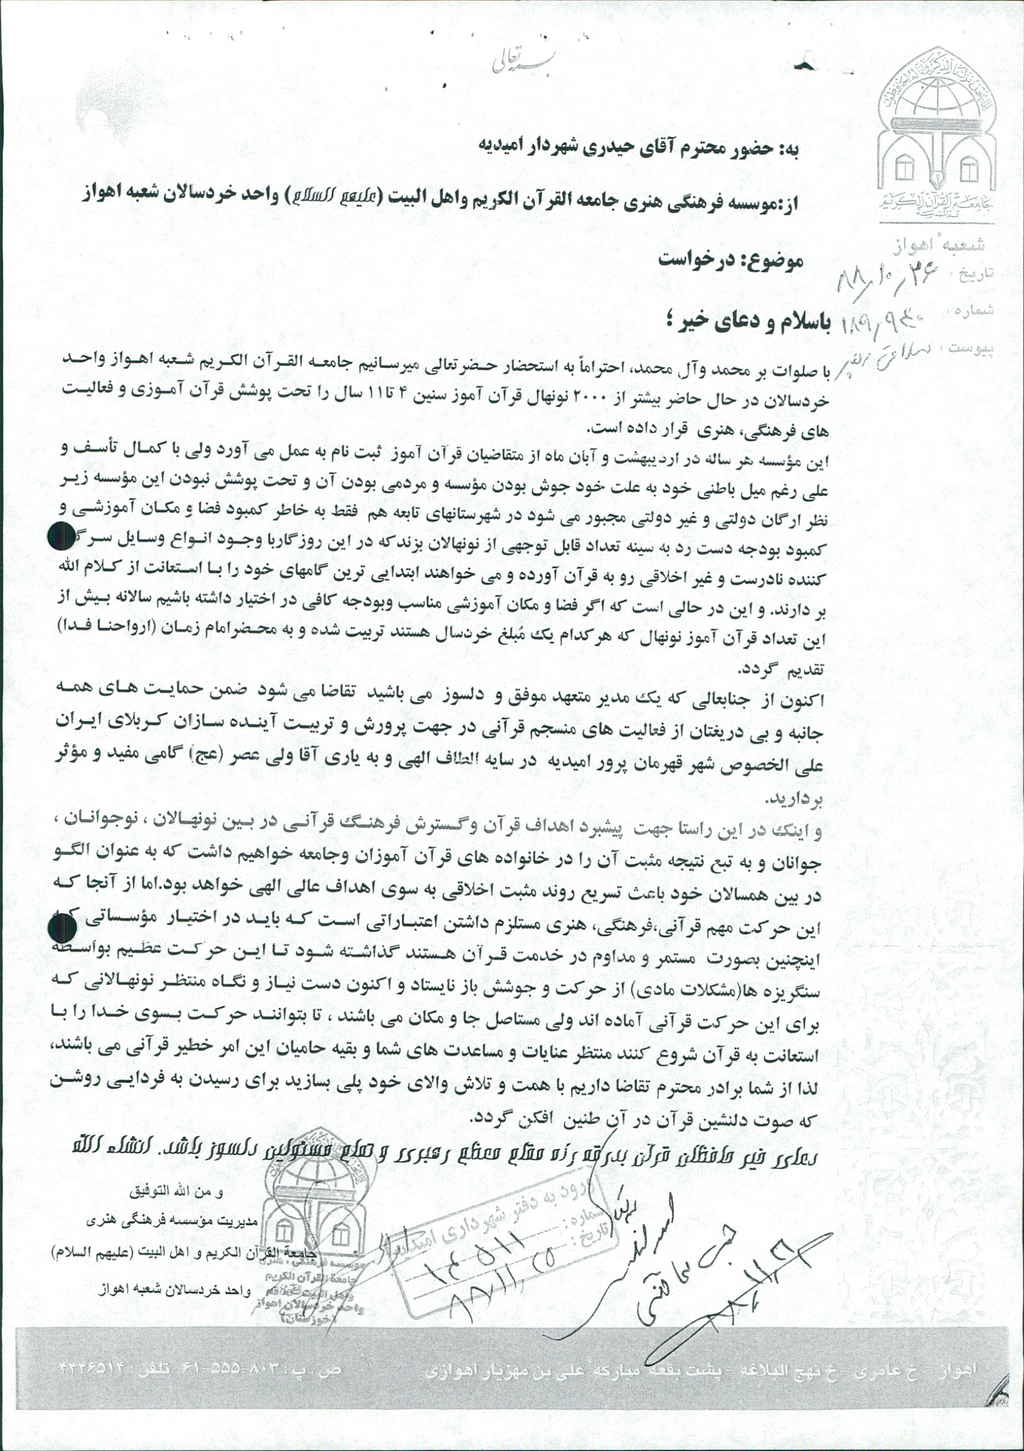 بسمه تعالی
جامعة القرآن الکریم
شعبه اهواز
تاریخ: ۸۸/۱۰/۲۶
شماره: ۱۸۹/۹۳۰
پیوست:
به: حضور محترم آقای حیدری شهردار امیدیه
از:موسسه فرهنگی هنری جامعه القرآن الکریم واهل البیت (علیهم السلام) واحد خردسالان شعبه اهواز
موضوع: درخواست
باسلام و دعای خیر ؛
با صلوات بر محمد وآل محمد، احتراماً به استحضار حضرتعالی میرسانیم جامعه القرآن الکریم شعبه اهواز واحد
خردسالان در حال حاضر بیشتر از ۲۰۰۰ نونهال قرآن آموز سنین ۴ تا۱۱ سال را تحت پوشش قرآن آموزی و فعالیت
های فرهنگی، هنری قرار داده است.
این مؤسسه هر ساله در اردیبهشت و آبان ماه از متقاضیان قرآن آموز ثبت نام به عمل می آورد ولی با کمال تأسف و
علی رغم میل باطنی خود به علت خود جوش بودن مؤسسه و مردمی بودن آن و تحت پوشش نبودن این مؤسسه زیر
نظر ارگان دولتی و غیر دولتی مجبور می شود در شهرستانهای تابعه هم فقط به خاطر کمبود فضا و مکان آموزشی و
کمبود بودجه دست رد به سینه تعداد قابل توجهی از نونهالان بزندکه در این روزگاربا وجود انواع وسایل سرگ
کننده نادرست و غیر اخلاقی رو به قرآن آورده و می خواهند ابتدایی ترین گامهای خود را با استعانت از کلام الله
بر دارند. و این در حالی است که اگر فضا و مکان آموزشی مناسب وبودجه کافی در اختیار داشته باشیم سالانه بیش از
این تعداد قرآن آموز نونهال که هرکدام یک مُبلغ خردسال هستند تربیت شده و به محضرامام زمان (ارواحنا فدا)
تقدیم گردد.
اکنون از جنابعالی که یک مدیر متعهد موفق و دلسوز می باشید تقاضا می شود ضمن حمایت های همه
جانبه و بی دریغتان از فعالیت های منسجم قرآنی در جهت پرورش و تربیت آینده سازان کربلای ایران
علی الخصوص شهر قهرمان پرور امیدیه در سایه الطاف الهی و به یاری آقا ولی عصر (عج) گامی مفید و مؤثر
بردارید.
و اینک در این راستا جهت پیشبرد اهداف قرآن وگسترش فرهنگ قرآنی در بین نونهالان ، نوجوانان ،
جوانان و به تبع نتیجه مثبت آن را در خانواده های قرآن آموزان وجامعه خواهیم داشت که به عنوان الگو
در بین همسالان خود باعث تسریع روند مثبت اخلاقی به سوی اهداف عالی الهی خواهد بود.اما از آنجا که
این حرکت مهم قرآنی،فرهنگی، هنری مستلزم داشتن اعتباراتی است که باید در اختیار مؤسساتی که
اینچنین بصورت مستمر و مداوم در خدمت قرآن هستند گذاشته شود تا این حرکت عظیم بواسطه
سنگریزه ها(مشکلات مادی) از حرکت و جوشش باز نایستاد و اکنون دست نیاز و نگاه منتظر نونهالانی که
برای این حرکت قرآنی آماده اند ولی مستاصل جا و مکان می باشند ، تا بتوانند حرکت بسوی خدا را با
استعانت به قرآن شروع کنند منتظر عنایات و مساعدت های شما و بقیه حامیان این امر خطیر قرآنی می باشند،
لذا از شما برادر محترم تقاضا داریم با همت و تلاش والای خود پلی بسازید برای رسیدن به فردایی روشن
که صوت دلنشین قرآن در آن طنین افکن گردد.
دعای خیر حافظان قرآن بدرقه ره مقام معظم رهبری و تمام مسئولین دلسوز باشد. انشاء الله
و من الله التوفیق
مدیریت مؤسسه فرهنگی هنری
جامعة القرآن الکریم و اهل البیت (علیهم السلام)
واحد خردسالان شعبه اهواز
موسسه فرهنگی هنری
جامعة القرآن الکریم
واهل البیت علیهم السلام
واحد خردسالان اهواز
(خوزستان)
ورود به دفتر شهرداری امیدیه
شماره: ۱۴۵۱۱
تاریخ: ۸۸/۱۱/۲۵
اهواز خ عامری - خ نهج البلاغه - پشت بقعه مبارکه علی بن مهزیار اهوازی ص.پ: ۸۰۳-۵۵۵-۶۱ تلفن: ۴۲۲۶۵۱۴